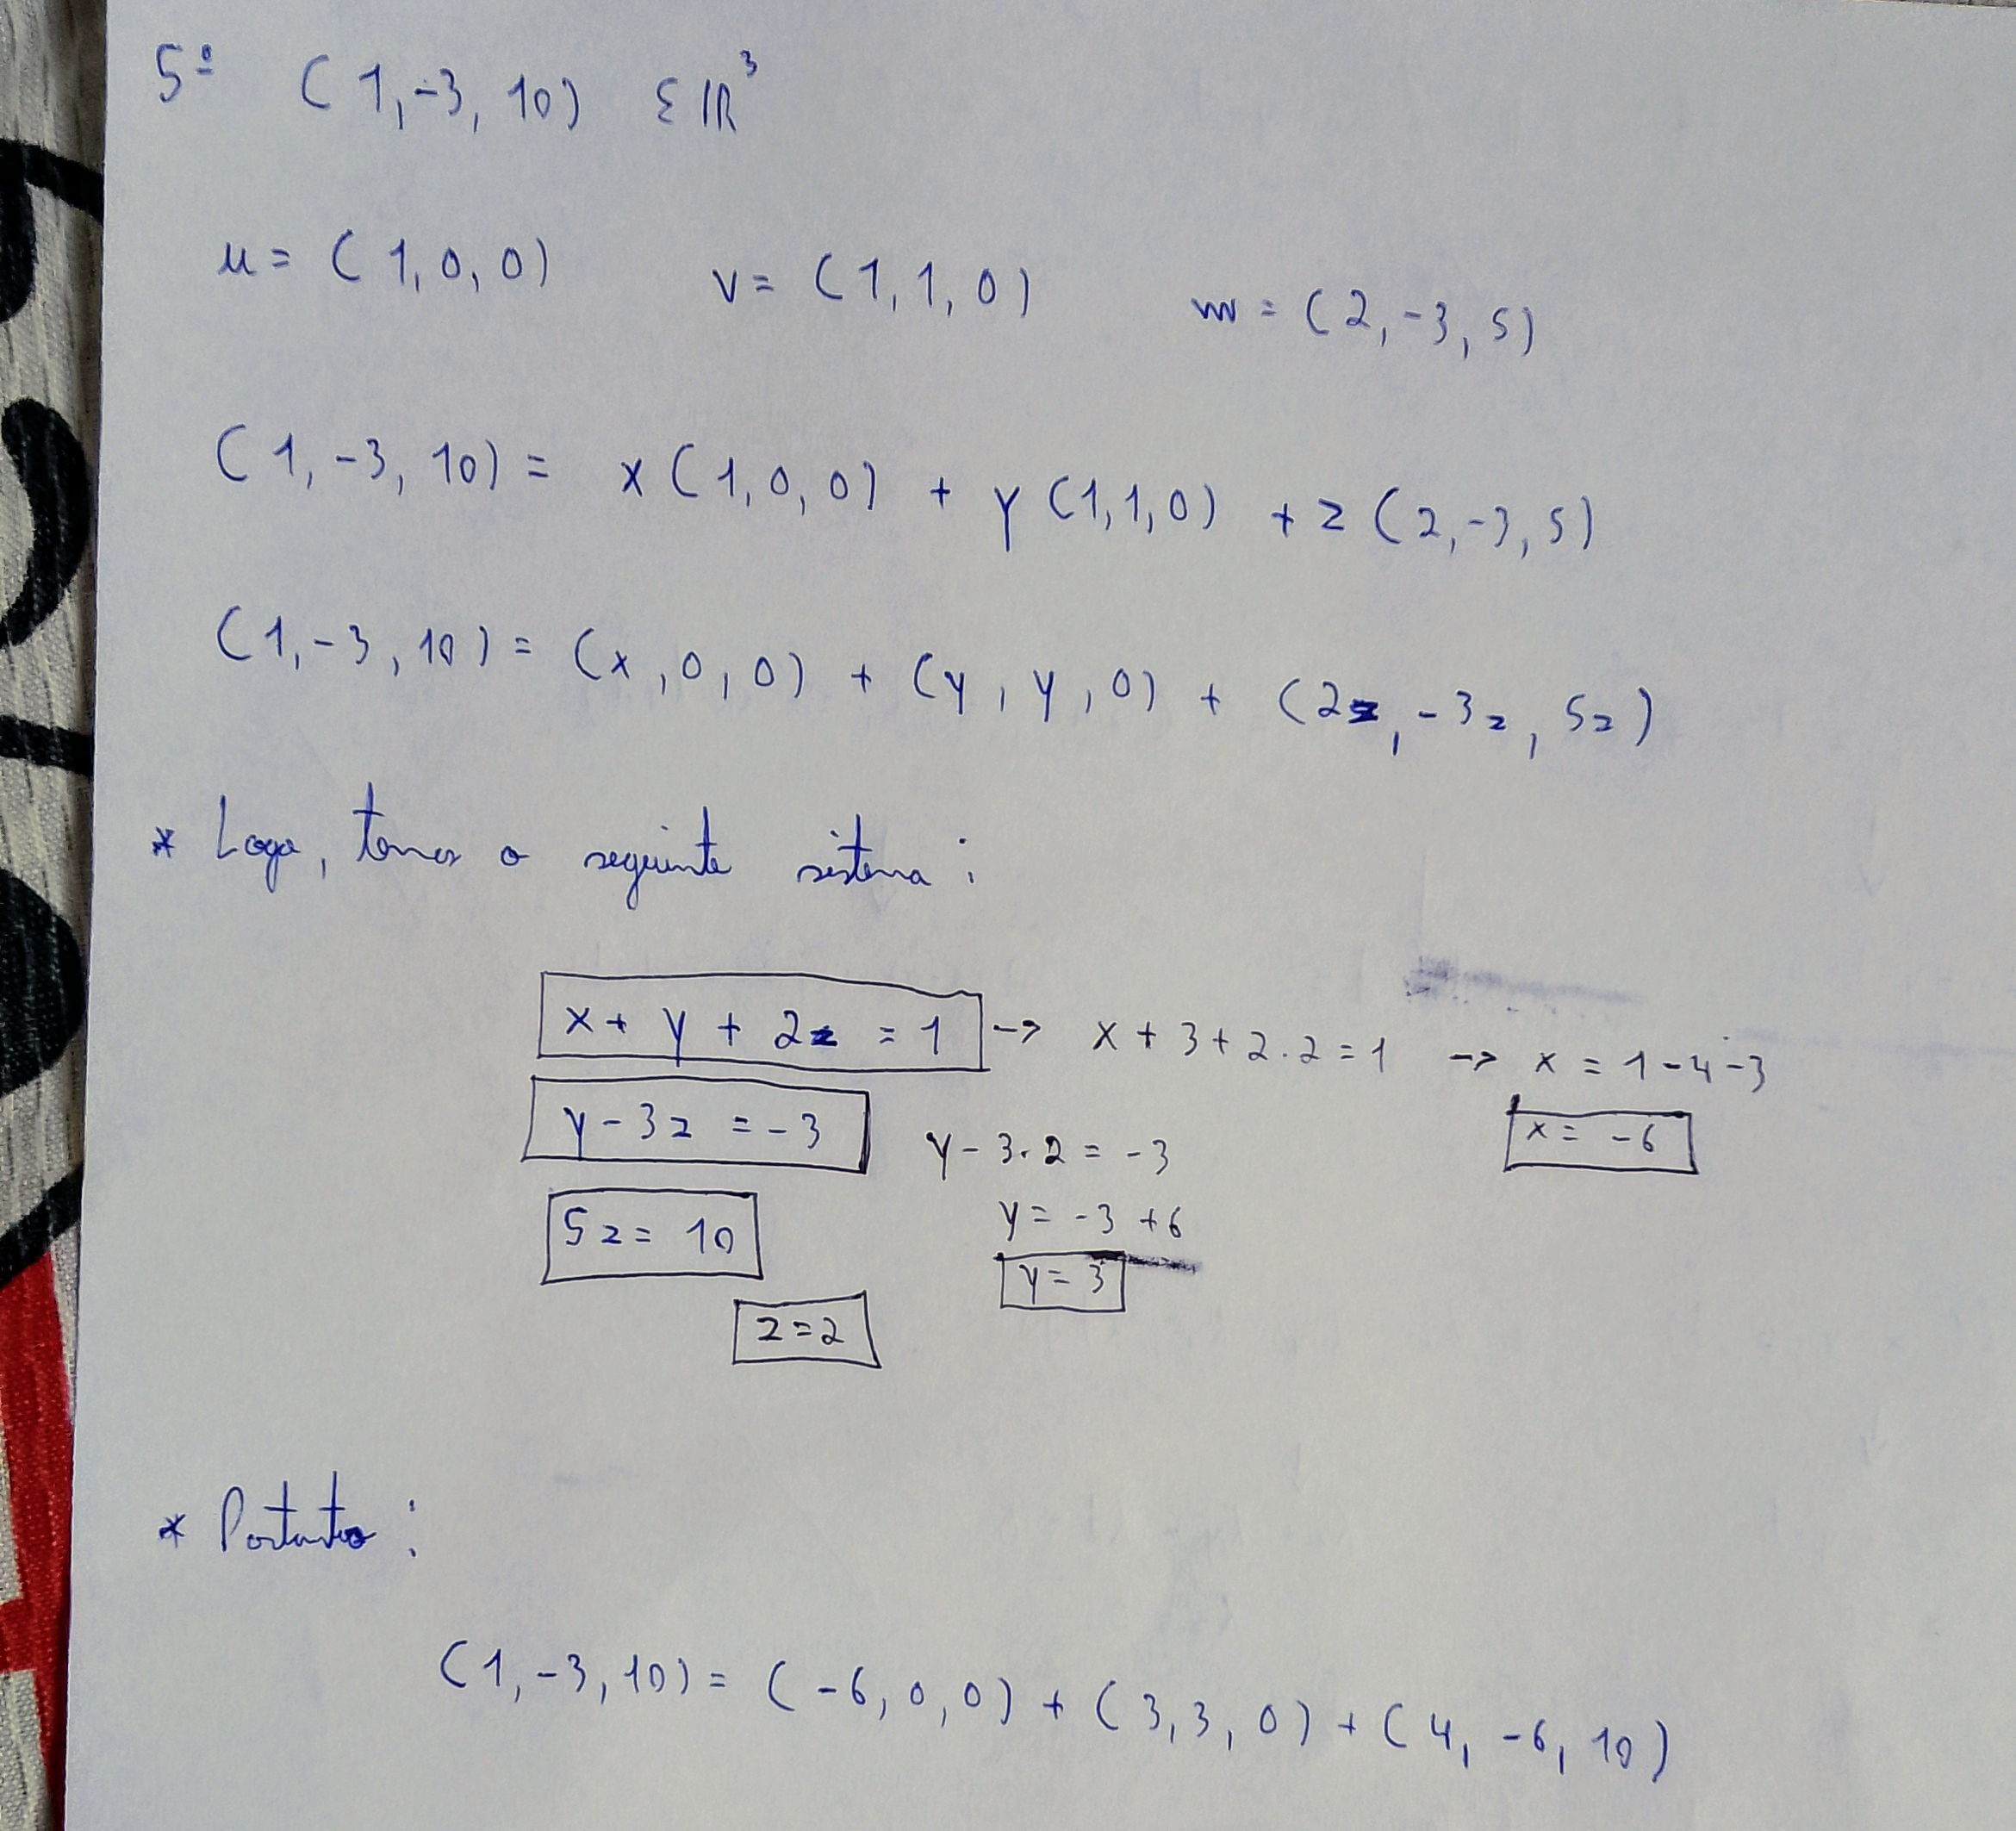 5º (1,-3, 10) ∈ ℝ³
u = (1,0,0) v = (1,1,0) w = (2,-3,5)
(1,-3, 10) = x(1,0,0) + y(1,1,0) + z(2,-3,5)
(1,-3, 10) = (x,0,0) + (y,y,0) + (2z,-3z,5z)
* Logo, temos o seguinte sistema:
x + y + 2z = 1 -> x + 3 + 2.2 = 1 -> x = 1-4-3
y - 3z = -3 y - 3.2 = -3 x = -6
5z = 10 y = -3 + 6
y = 3
z = 2
* Portanto:
(1,-3, 10) = (-6,0,0) + (3,3,0) + (4,-6,10)